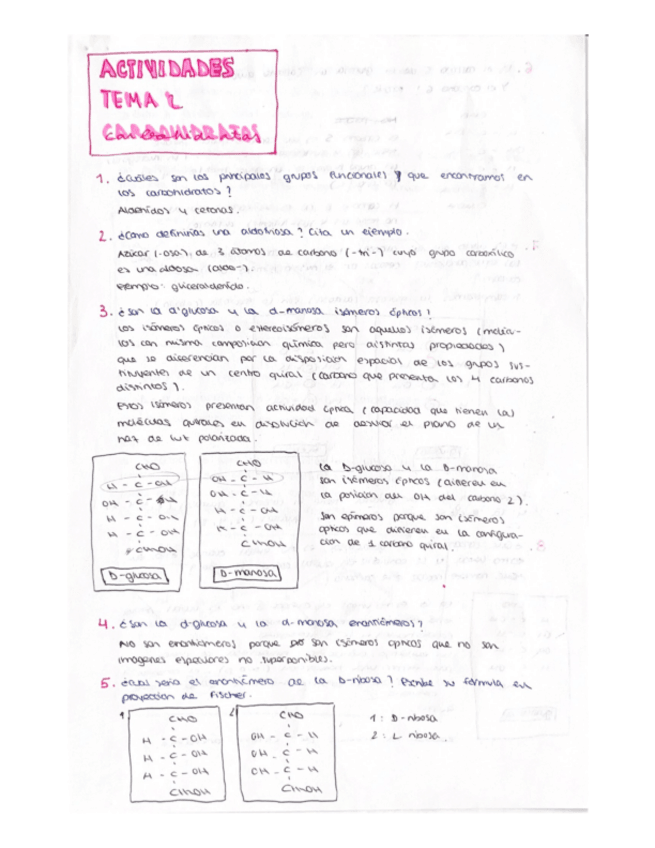 ACTIVIDADES
TEMA 2
CARBOHIDRATOS
1. ¿Cuáles son los principales grupos funcionales y que encontramos en
los carbohidratos?
Aldehidos y cetonas.
2. ¿Cómo definirías una aldotriosa? Cita un ejemplo.
Azúcar (-osa), de 3 átomos de carbono (-tri-) cuyo grupo carbonílico
es una aldosa (aldo-).
Ejemplo: gliceraldehído.
3. ¿Son la d-glucosa y la d-manosa isómeros ópticos?
Los isómeros ópticos o estereoisómeros son aquellos isómeros (molécu-
las con misma composición química pero distintas propiedades)
que se diferencian por la disposición espacial de los grupos sus-
tituyentes de un centro quiral (carbono que presenta los 4 carbonos
distintos).
Estos isómeros presentan actividad óptica (capacidad que tienen las
moléculas quirales en disolución de desviar el plano de un
haz de luz polarizada.
CHO
H - C - OH
OH - C - H
H - C - OH
H - C - OH
CH2OH
D-glucosa
CHO
OH - C - H
OH - C - H
H - C - OH
H - C - OH
CH2OH
D-manosa
La D-glucosa y la D-manosa
son isómeros ópticos (difieren en
la posición del OH del carbono 2).
Son epímeros porque son isómeros
ópticos que difieren en la configura-
ción de 1 carbono quiral.
4. ¿Son la d-glucosa y la d-manosa enantiómeros?
No son enantiómeros porque son isómeros ópticos que no son
imágenes especulares no superponibles.
5. ¿Cuál sería el enantiómero de la D-ribosa? Escribe su fórmula en
proyección de Fischer.
1
CHO
H - C - OH
H - C - OH
H - C - OH
CH2OH
2
CHO
OH - C - H
OH - C - H
OH - C - H
CH2OH
1: D-ribosa
2: L ribosa.